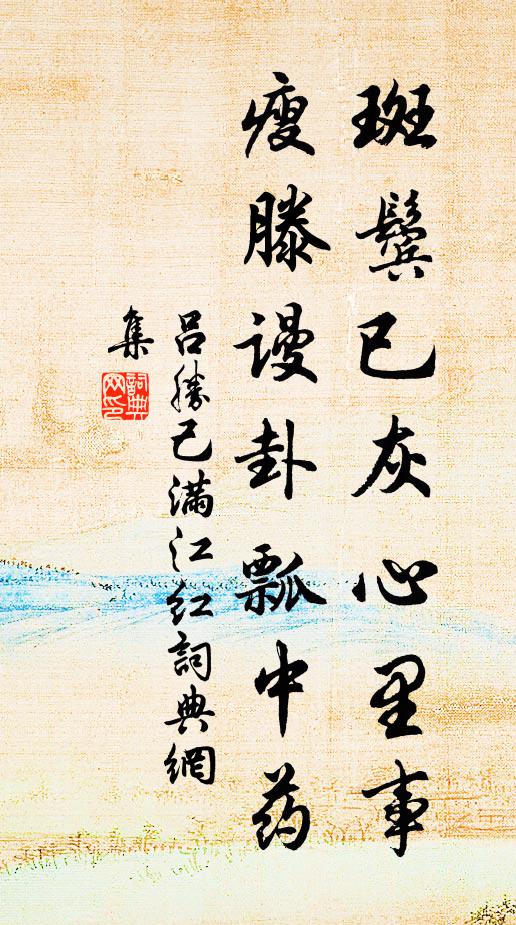 斑鬓已灰心里事
瘦滕谩卦瓢中药
吕勝己满江红詞典網
集
詞典网印